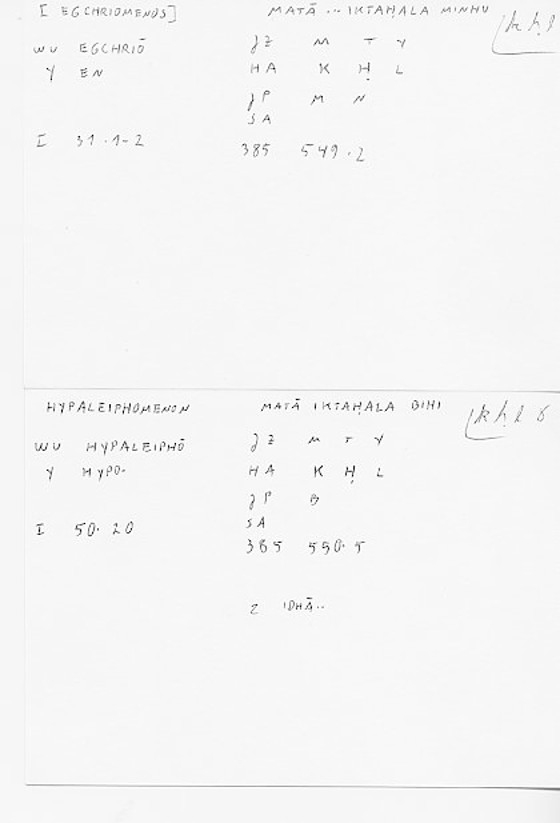 [ EGCHRIOMENOS] MATĀ ... IKTAḤALA MINHU kḥl
WU EGCHRIŌ JZ M T Y
Y EN HA K Ḥ L
JP M N
SA
I 31.1-2 385 549.2
HYPALEIPHOMENON MATĀ IKTAḤALA BIHI kḥl 8
WU HYPALEIPHŌ JZ M T Y
Y HYPO- HA K Ḥ L
JP B
I 50.20 SA
385 550.5
2 IDHĀ..